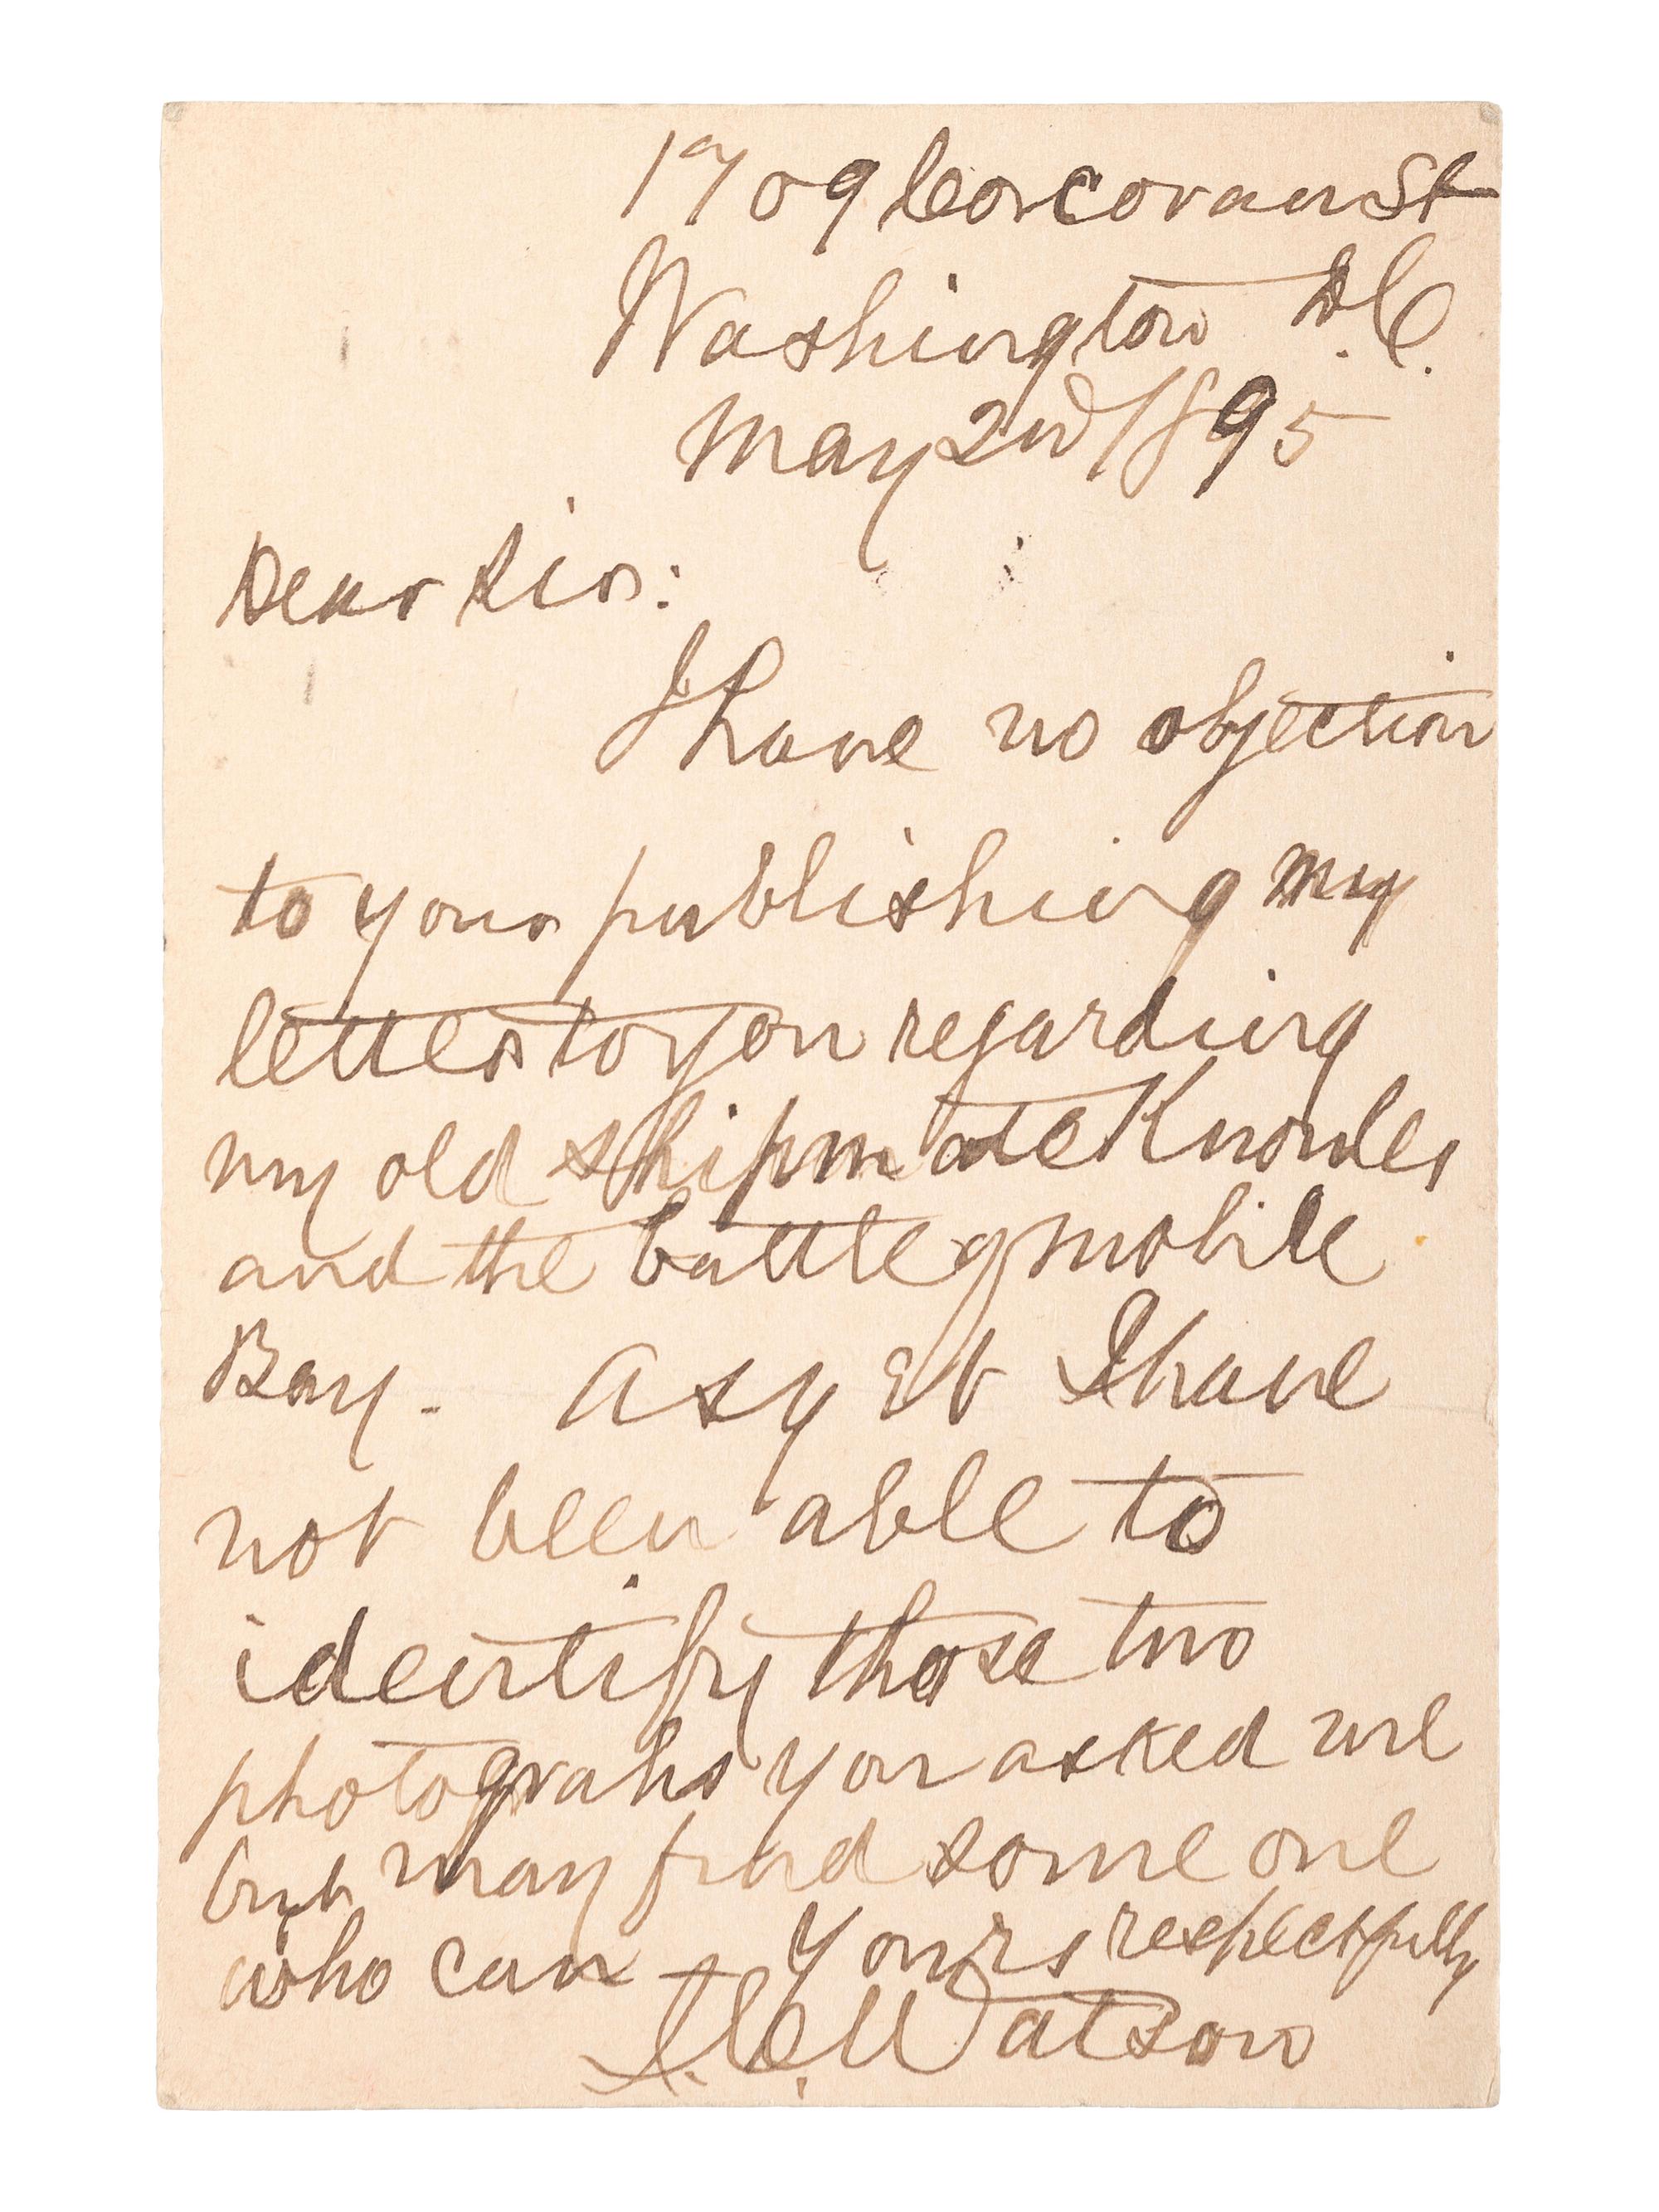 1709 Corcoran St
Washington D.C.
May 2nd 1895
Dear Sir:
I have no objection
to your publishing my
letter to you regarding
my old shipmate Knowles
and the battle of Mobile
Bay. As yet I have
not been able to
identify those two
photograhs you asked me
but may find some one
who can Yours respectfully
J.C. Watson